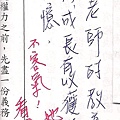 老師的教
成長
憶，
不客氣！
權力之前，先盡一份義務